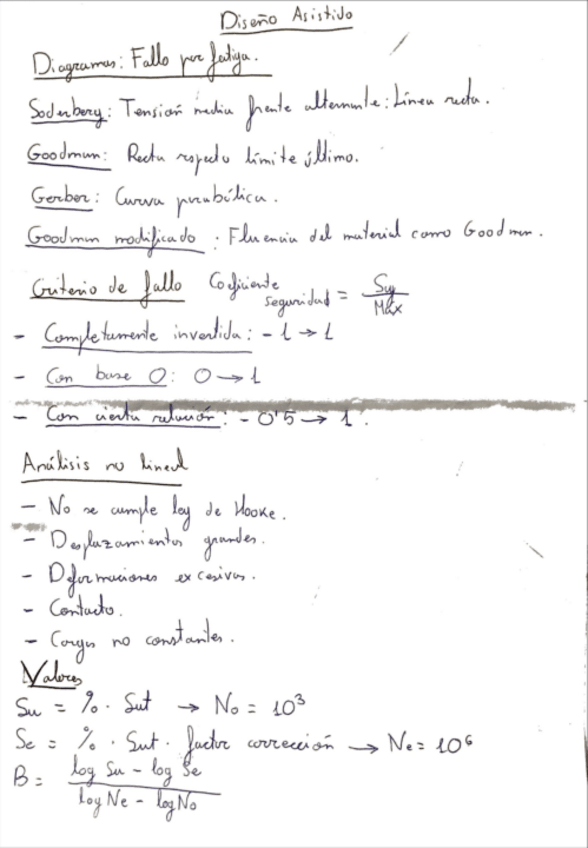 Diseño Asistido
Diagramas: Fallo por fatiga.
Soderberg: Tensión media frente alternante: Línea recta.
Goodman: Recta respecto límite último.
Gerber: Curva parabólica.
Goodman modificado: Fluencia del material como Goodman.
Criterio de fallo Coeficiente seguridad = Sy / Máx
- Completamente invertida: -1 → 1
- Con base 0: 0 → 1
- Con cierta relación: -0'5 → 1.
Análisis no lineal
- No se cumple ley de Hooke.
- Desplazamientos grandes.
- Deformaciones excesivas.
- Contacto.
- Cargas no constantes.
Valores
Su = %. Sut → No = 10³
Se = % · Sut · factor corrección → Ne = 10⁶
B = log Su - log Se / log Ne - log No